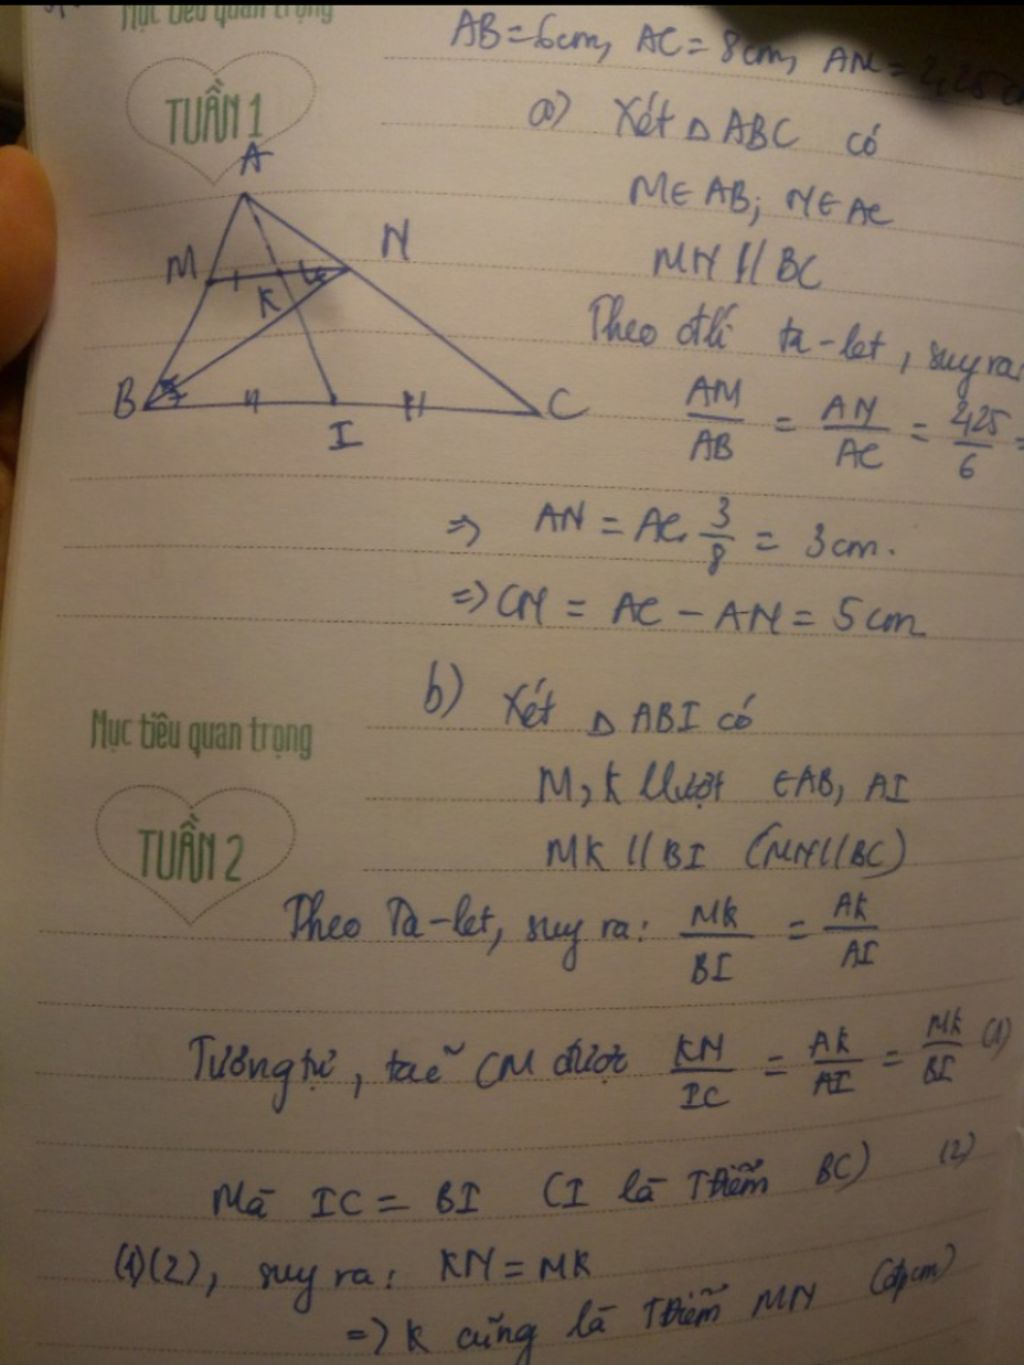 Mục tiêu quan trọng
AB = 6cm, AC = 8cm, AM = 2,25
TUẦN 1
a) Xét Δ ABC có
M ∈ AB; N ∈ AC
MN // BC
Theo đlí ta-let, suy ra:
AM/AB = AN/AC = 2,25/6 =
A
M
N
K
B
I
C
=> AN = AC. 3/8 = 3cm.
=> CN = AC - AN = 5cm
b) Xét Δ ABI có
Mục tiêu quan trọng
M, K llượt ∈ AB, AI
TUẦN 2
MK // BI (MN // BC)
Theo Ta-let, suy ra: MK/BI = AK/AI
Tương tự, ta CM được KN/IC = AK/AI = MK/BI (1)
Mà IC = BI (I là Tđiểm BC) (2)
(1)(2), suy ra: KN = MK
=> K cũng là Tđiểm MN (đpcm)